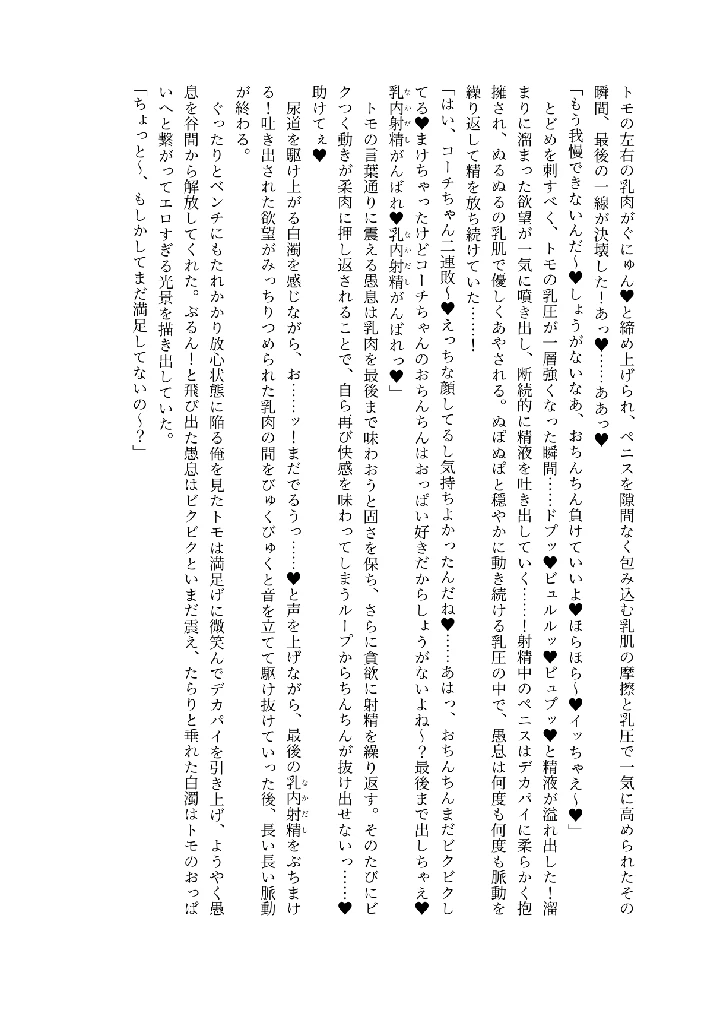 トモの左右の乳肉がぐにゅん♥と締め上げられ、ペニスを隙間なく包み込む乳肌の摩擦と乳圧で一気に高められたその
瞬間、最後の一線が決壊した！あっ♥……ああっ♥
「もう我慢できないんだ～♥しょうがないなあ、おちんちん負けていいよ♥ほらほら～♥イッちゃえ～♥」
とどめを刺すべく、トモの乳圧が一層強くなった瞬間……ドプッ♥ビュルルッ♥ピュプッ♥と精液が溢れ出した！溜
まりに溜まった欲望が一気に噴き出し、断続的に精液を吐き出していく……！射精中のペニスはデカパイに柔らかく抱
擁され、ぬるぬるの乳肌で優しくあやされる。ぬぽぬぽと穏やかに動き続ける乳圧の中で、愚息は何度も何度も脈動を
繰り返して精を放ち続けていた……！
「はい、コーチちゃん二連敗～♥えっちな顔してるし気持ちよかったんだね♥……あはっ、おちんちんまだビクビクし
てる♥まけちゃったけどコーチちゃんのおちんちんはおっぱい好きだからしょうがないよね～？最後まで出しちゃえ♥
乳内射精がんばれ♥乳内射精がんばれっ♥」
トモの言葉通りに震える愚息は乳肉を最後まで味わおうと固さを保ち、さらに貪欲に射精を繰り返す。そのたびにビ
クつく動きが柔肉に押し返されることで、自ら再び快感を味わってしまうループからちんちんが抜け出せないっ……♥
助けてぇ♥
尿道を駆け上がる白濁を感じながら、お……ッ！まだでるうっ……♥と声を上げながら、最後の乳内射精をぶちまけ
る！吐き出された欲望がみっちりつめられた乳肉の間をびゅくびゅくと音を立てて駆け抜けていった後、長い長い脈動
が終わる。
ぐったりとベンチにもたれかかり放心状態に陥る俺を見たトモは満足げに微笑んでデカパイを引き上げ、ようやく愚
息を谷間から解放してくれた。ぶるん！と飛び出た愚息はビクビクといまだ震え、たらりと垂れた白濁はトモのおっぱ
いへと繋がってエロすぎる光景を描き出していた。
「ちょっと～、もしかしてまだ満足してないの～？」